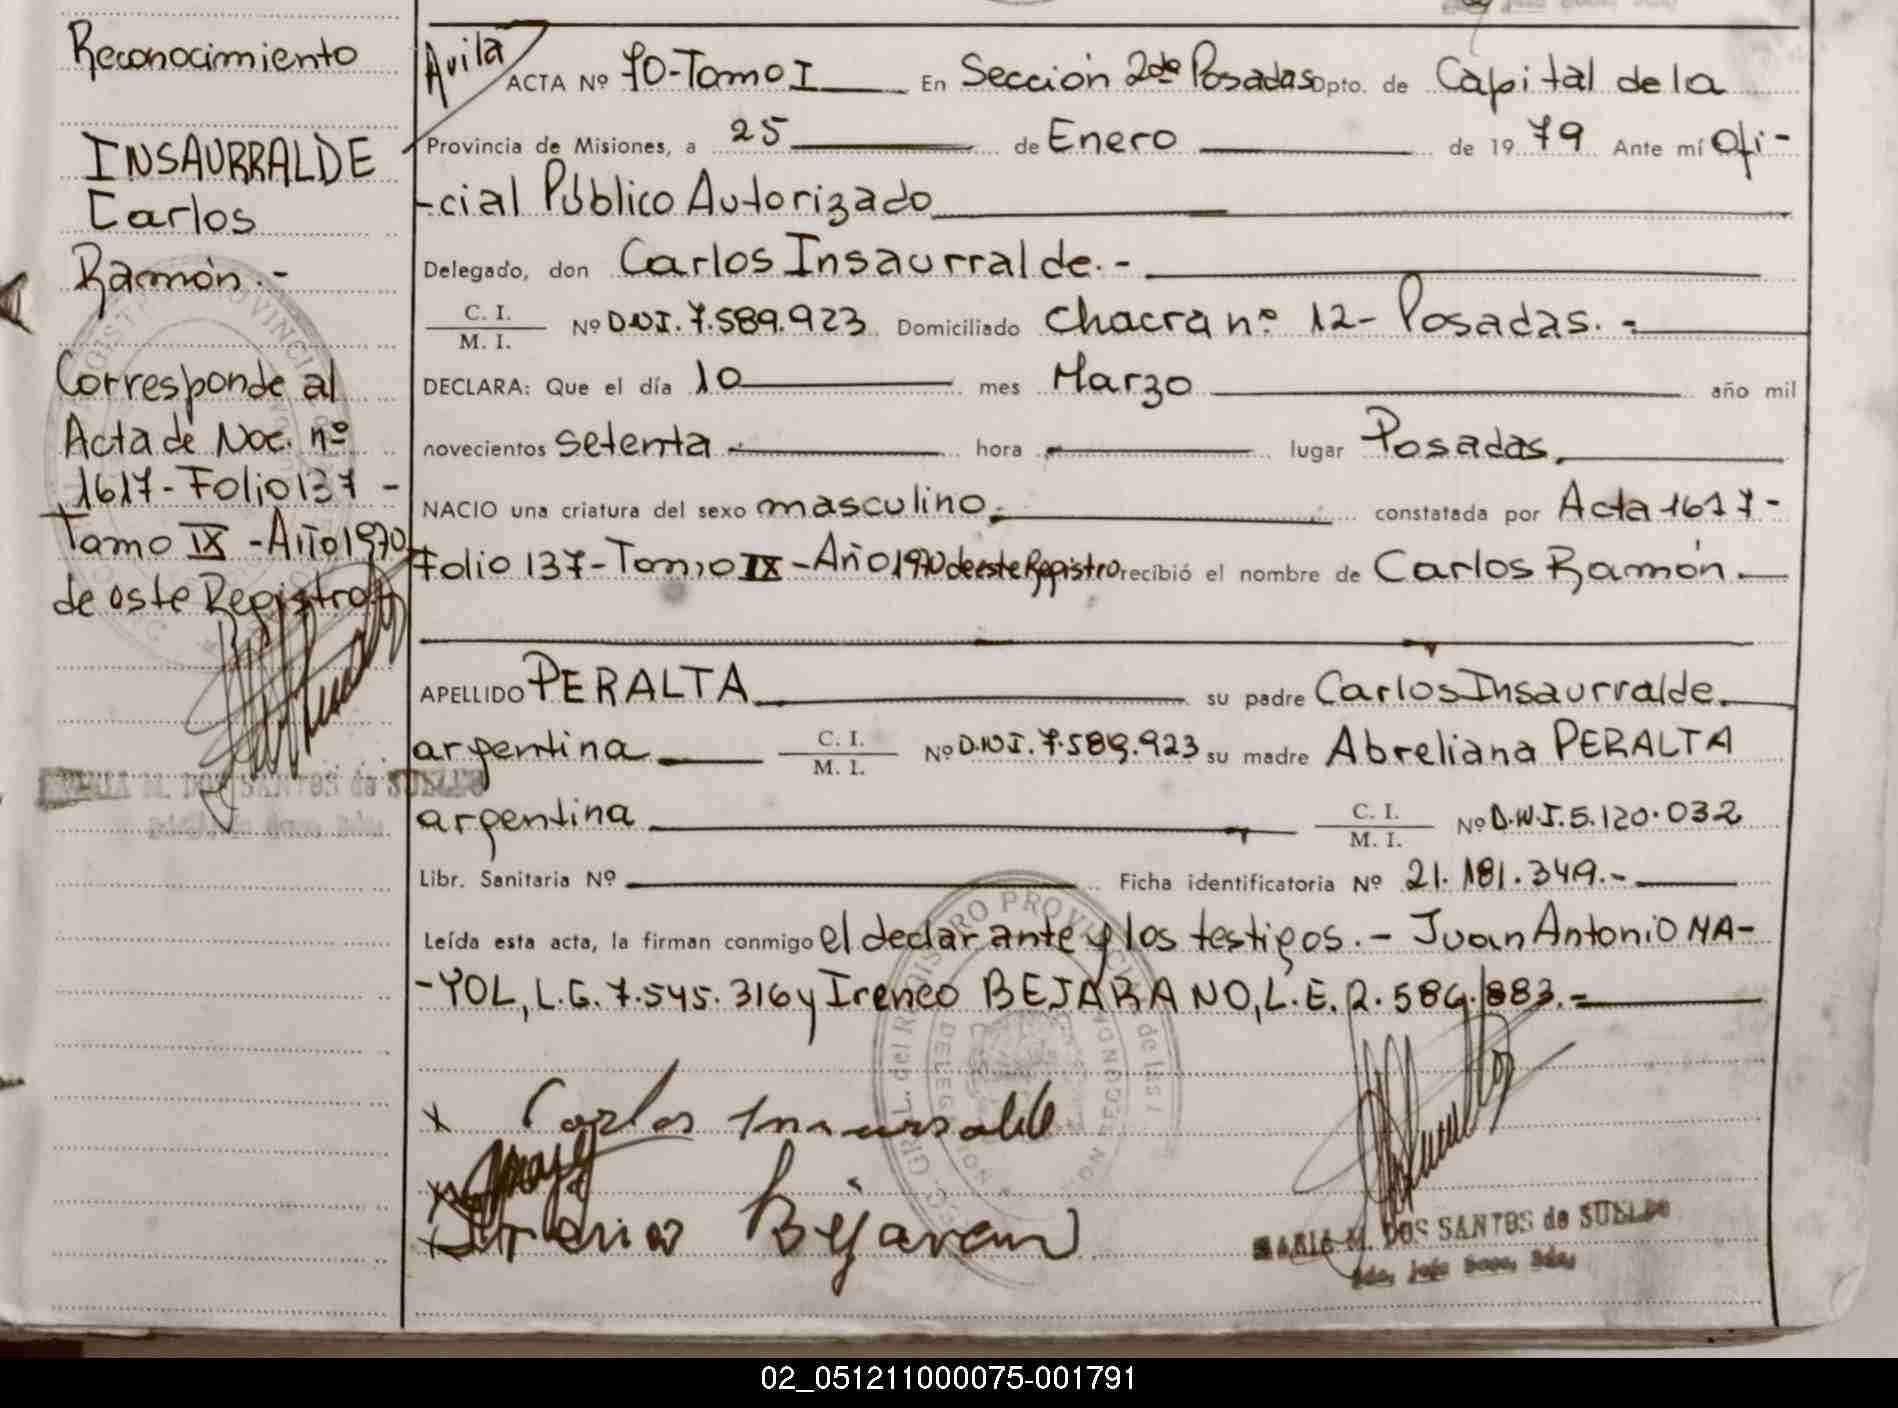 Reconocimiento
INSAURRALDE
Carlos
Ramón.-
Corresponde al
Acta de Nac. nº
1617-Folio 137-
Tomo IX-Año 1970
de este Registro
MARIA M. DOS SANTOS de SUELDO
Avila
ACTA Nº 70-Tomo I En Sección 2da Posadas Dpto. de Capital de la
Provincia de Misiones, a 25 de Enero de 19 79 Ante mí Ofi-
-cial Público Autorizado
Delegado, don Carlos Insaurralde.-
C. I.
M. I. Nº D.N.I. 7.589.923 Domiciliado Chacra nº 12- Posadas.-
DECLARA: Que el día 10 mes Marzo año mil
novecientos setenta hora lugar Posadas
NACIO una criatura del sexo masculino constatada por Acta 1617-
Folio 137-Tomo IX-Año 1970 de este Registro recibió el nombre de Carlos Ramón.
APELLIDO PERALTA su padre Carlos Insaurralde
argentina C. I.
M. I. Nº D.N.I. 7.589.923 su madre Abreliana PERALTA
argentina C. I.
M. I. Nº D.N.I. 5.120.032
Libr. Sanitaria Nº Ficha identificatoria Nº 21.181.349.-
Leída esta acta, la firman conmigo el declarante y los testigos.- Juan Antonio MA-
-YOL, L.E. 7.545.316 y Ireneo BEJARANO, L.E. 2.586.883.-
Carlos Insaurralde
Ireneo Bejarano
MARIA M. DOS SANTOS de SUELDO
02_051211000075-001791